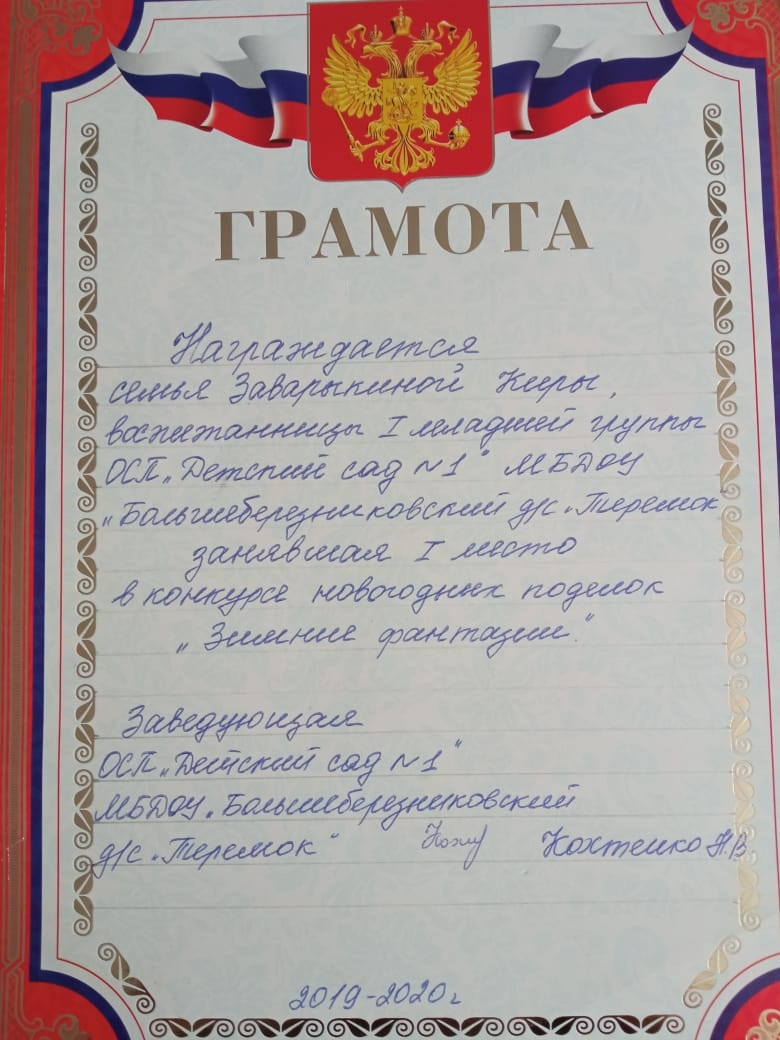 ГРАМОТА
Награждается
семья Заварыкиной Киры,
воспитанницы I младшей группы
ОСП „Детский сад №1" МБДОУ
„Большеберезниковский д/с „Теремок"
занявшая I место
в конкурсе новогодних поделок
„Зимние фантазии."
Заведующая
ОСП „Детский сад №1"
МБДОУ „Большеберезниковский
д/с „Теремок" Н.В.
2019-2020г